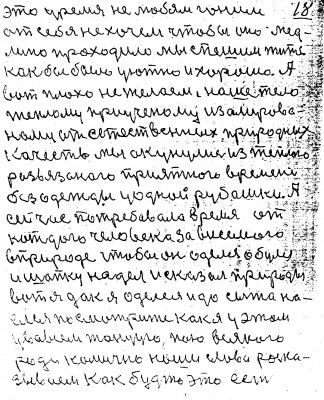 18
это время не любям гоним
от себя не хочем чтобы оно мед-
лино проходило мы спешим жить
как бы было уютно и хорошо. А
вот плохо не желаем, наше тело
тёплому приученому изалирова-
ному от естественных природных
качеств мы окунулис из тёплого
развязаного приятного времени
без одежды у одной рубашки. А
сейчас потребавала время от
каждого человека зависемого
в природе чтобы он оделся обулся
и шапку надел и сказал природы
вот я дак я оделся и до сыта на-
елся посмотрите как я у этом
всякого
ради наши слова рока-
зываем как будто это есть